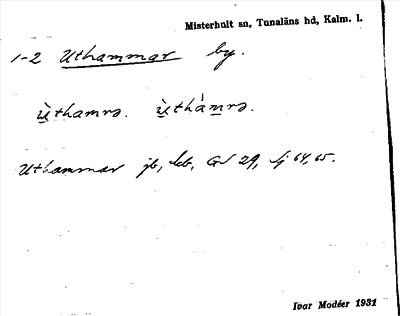 Misterhult sn, Tunaläns hd, Kalm. l.
1-2 Uthammar by.
Ùthamrə. Ùthámrə.
Uthammar jb, GS 29, Sj 64, 65.
Ivar Modéer 1931